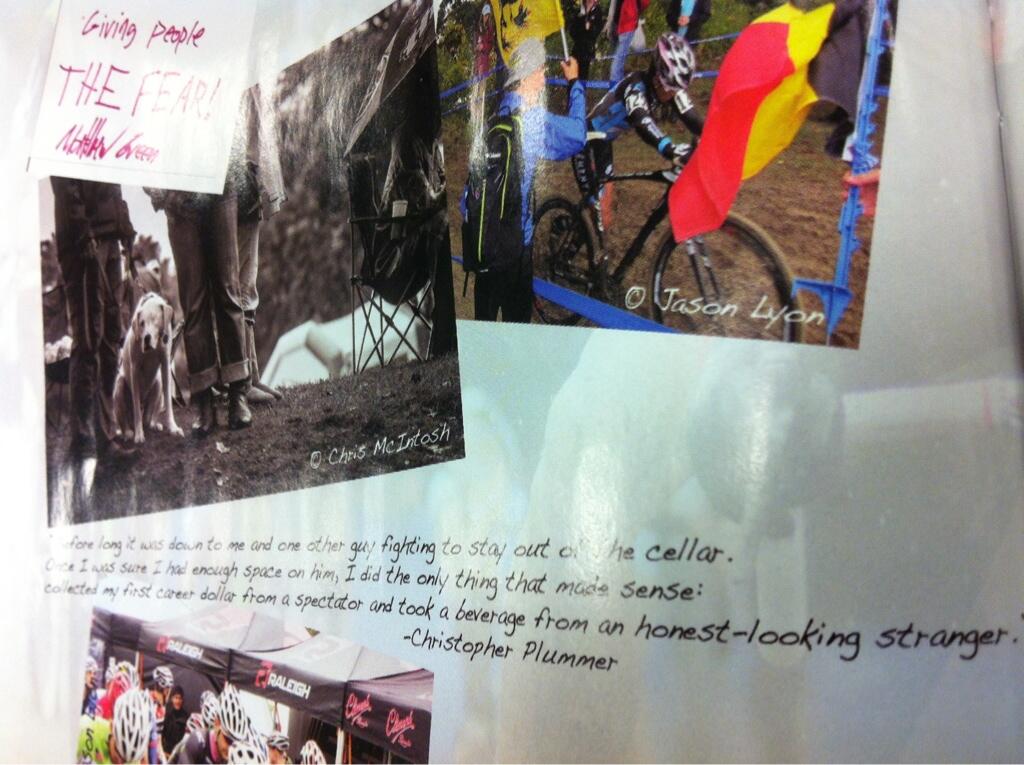 Giving people
THE FEAR!
Green
© Jason Lyon
© Chris McIntosh
"Before long it was down to me and one other guy fighting to stay out of the cellar.
Once I was sure I had enough space on him, I did the only thing that made sense:
collected my first career dollar from a spectator and took a beverage from an honest-looking stranger."
-Christopher Plummer
RALEIGH
RALEIGH